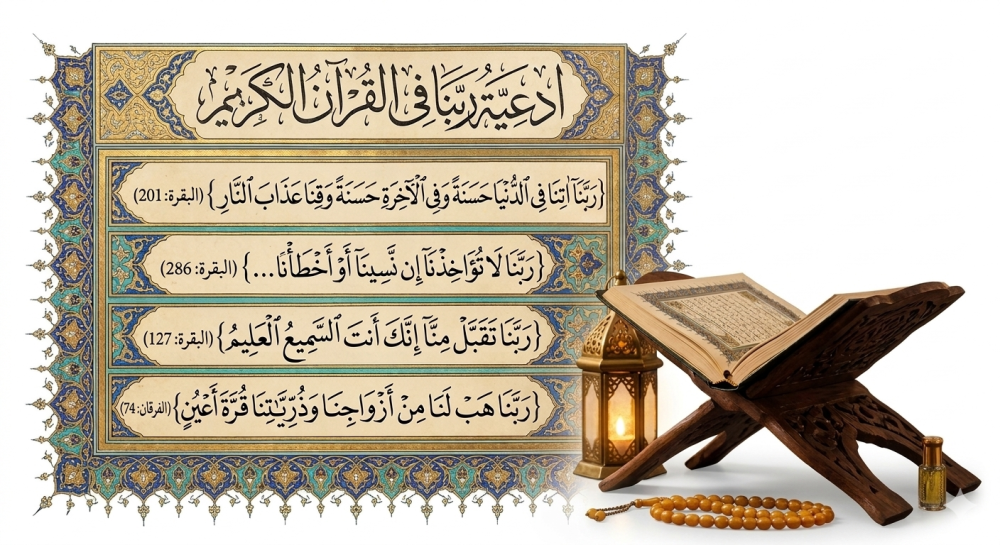 ادعِيَّة رَبَّنَا فِي القُرْآنُ الكَرِيْمِ
{رَبَّنَآ اٰتِنَا فِي ٱلدُّنْيَا حَسَنَةً وَفِي ٱلْآخِرَةِ حَسَنَةً وَقِنَا عَذَابَ ٱلنَّارِ} (البقرة: 201)
{رَبَّنَا لَا تُؤَاخِذْنَآ إِن نَّسِينَآ أَوْ أَخْطَأْنَا...} (البقرة: 286)
{رَبَّنَا تَقَبَّلْ مِنَّآ إِنَّكَ أَنتَ ٱلسَّمِيعُ ٱلْعَلِيمُ} (البقرة: 127)
{رَبَّنَا هَبْ لَنَا مِنْ أَزْوَاجِنَا وَذُرِّيَّٰتِنَا قُرَّةَ أَعْيُنٍ} (الفرقان: 74)